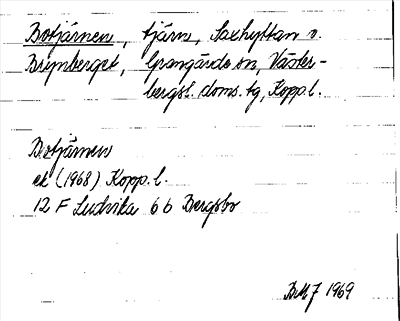 Botjärnen, tjärn, Saxhyttan o.
Brynberget, Grangärde sn, Väster-
bergsl. doms. tg, Kopp. l.
Botjärnen
ek (1968) Kopp. l.
12 F Ludvika 6 b Bergsbo
1969